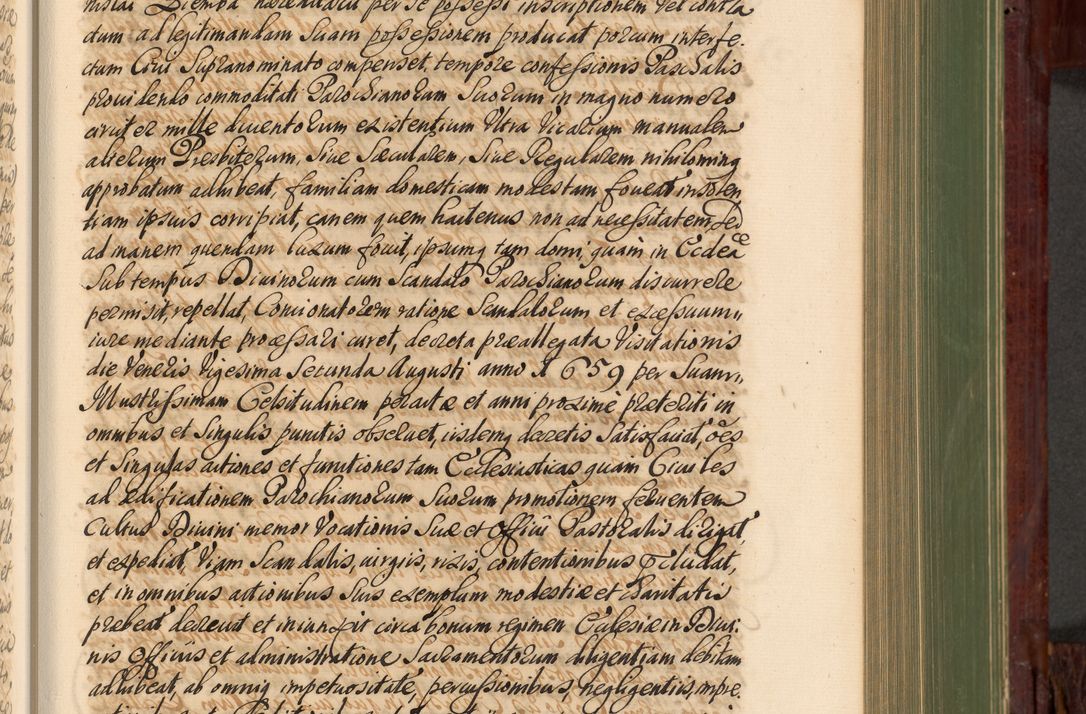 dum ad legitimandam suam possessionem producat porcum interfe-
ctum Cius Supranominato compenset, tempore confessionis Paschalis
providendo commoditati Parochianorum Suorum in magno numero
circiter mille ducentorum existentium Ultra Vicarium manualem
alterum Presbiterum, Sive Sæcularem, Sive Regularem nihilominq
approbatum adhibeat, familiam domesticam modestam foveat insolen
tiam ipsius corripiat, canem quem hactenus non ad necessitatem, sed
ad inanem quendam luxum fovit, ipsumq tam domi, quam in Ecclea
Sub tempus Divinorum cum Scandalo Parochianorum discurrere
permisit, repellat, Concionatorem ratione Scandalorum et excessuum
iure mediante processari curet, decreta præallegata Visitationis
die Veneris Vigesima Secunda Augusti anno 1659 per Suam
Illustrissimam Celsitudinem peractæ et anni proxime præteriti in
omnibus et Singulis punctis observet, iisdemq decretis Satisfaciat, oes
et Singulas actiones et functiones tam Ecclesiasticas quam Civiles
ad ædificationem Parochianorum Suorum promotionem ferventem
Cultus Divini memor Vocationis Suæ et Officii Pastoralis dirigat,
et expediat, Viam Scandalis, iurgiis, rixis, contentionibus præcludat,
et in omnibus actionibus Suis exemplum modestiæ et charitatis
præbeat decrevit et iniunxit circa bonum regimen Ecclesiæ in Divi-
nis officiis et administratione Sacramentorum diligentiam debitam
adhibeat, ab omniq impetuositate, percussionibus, negligentiis, impre-